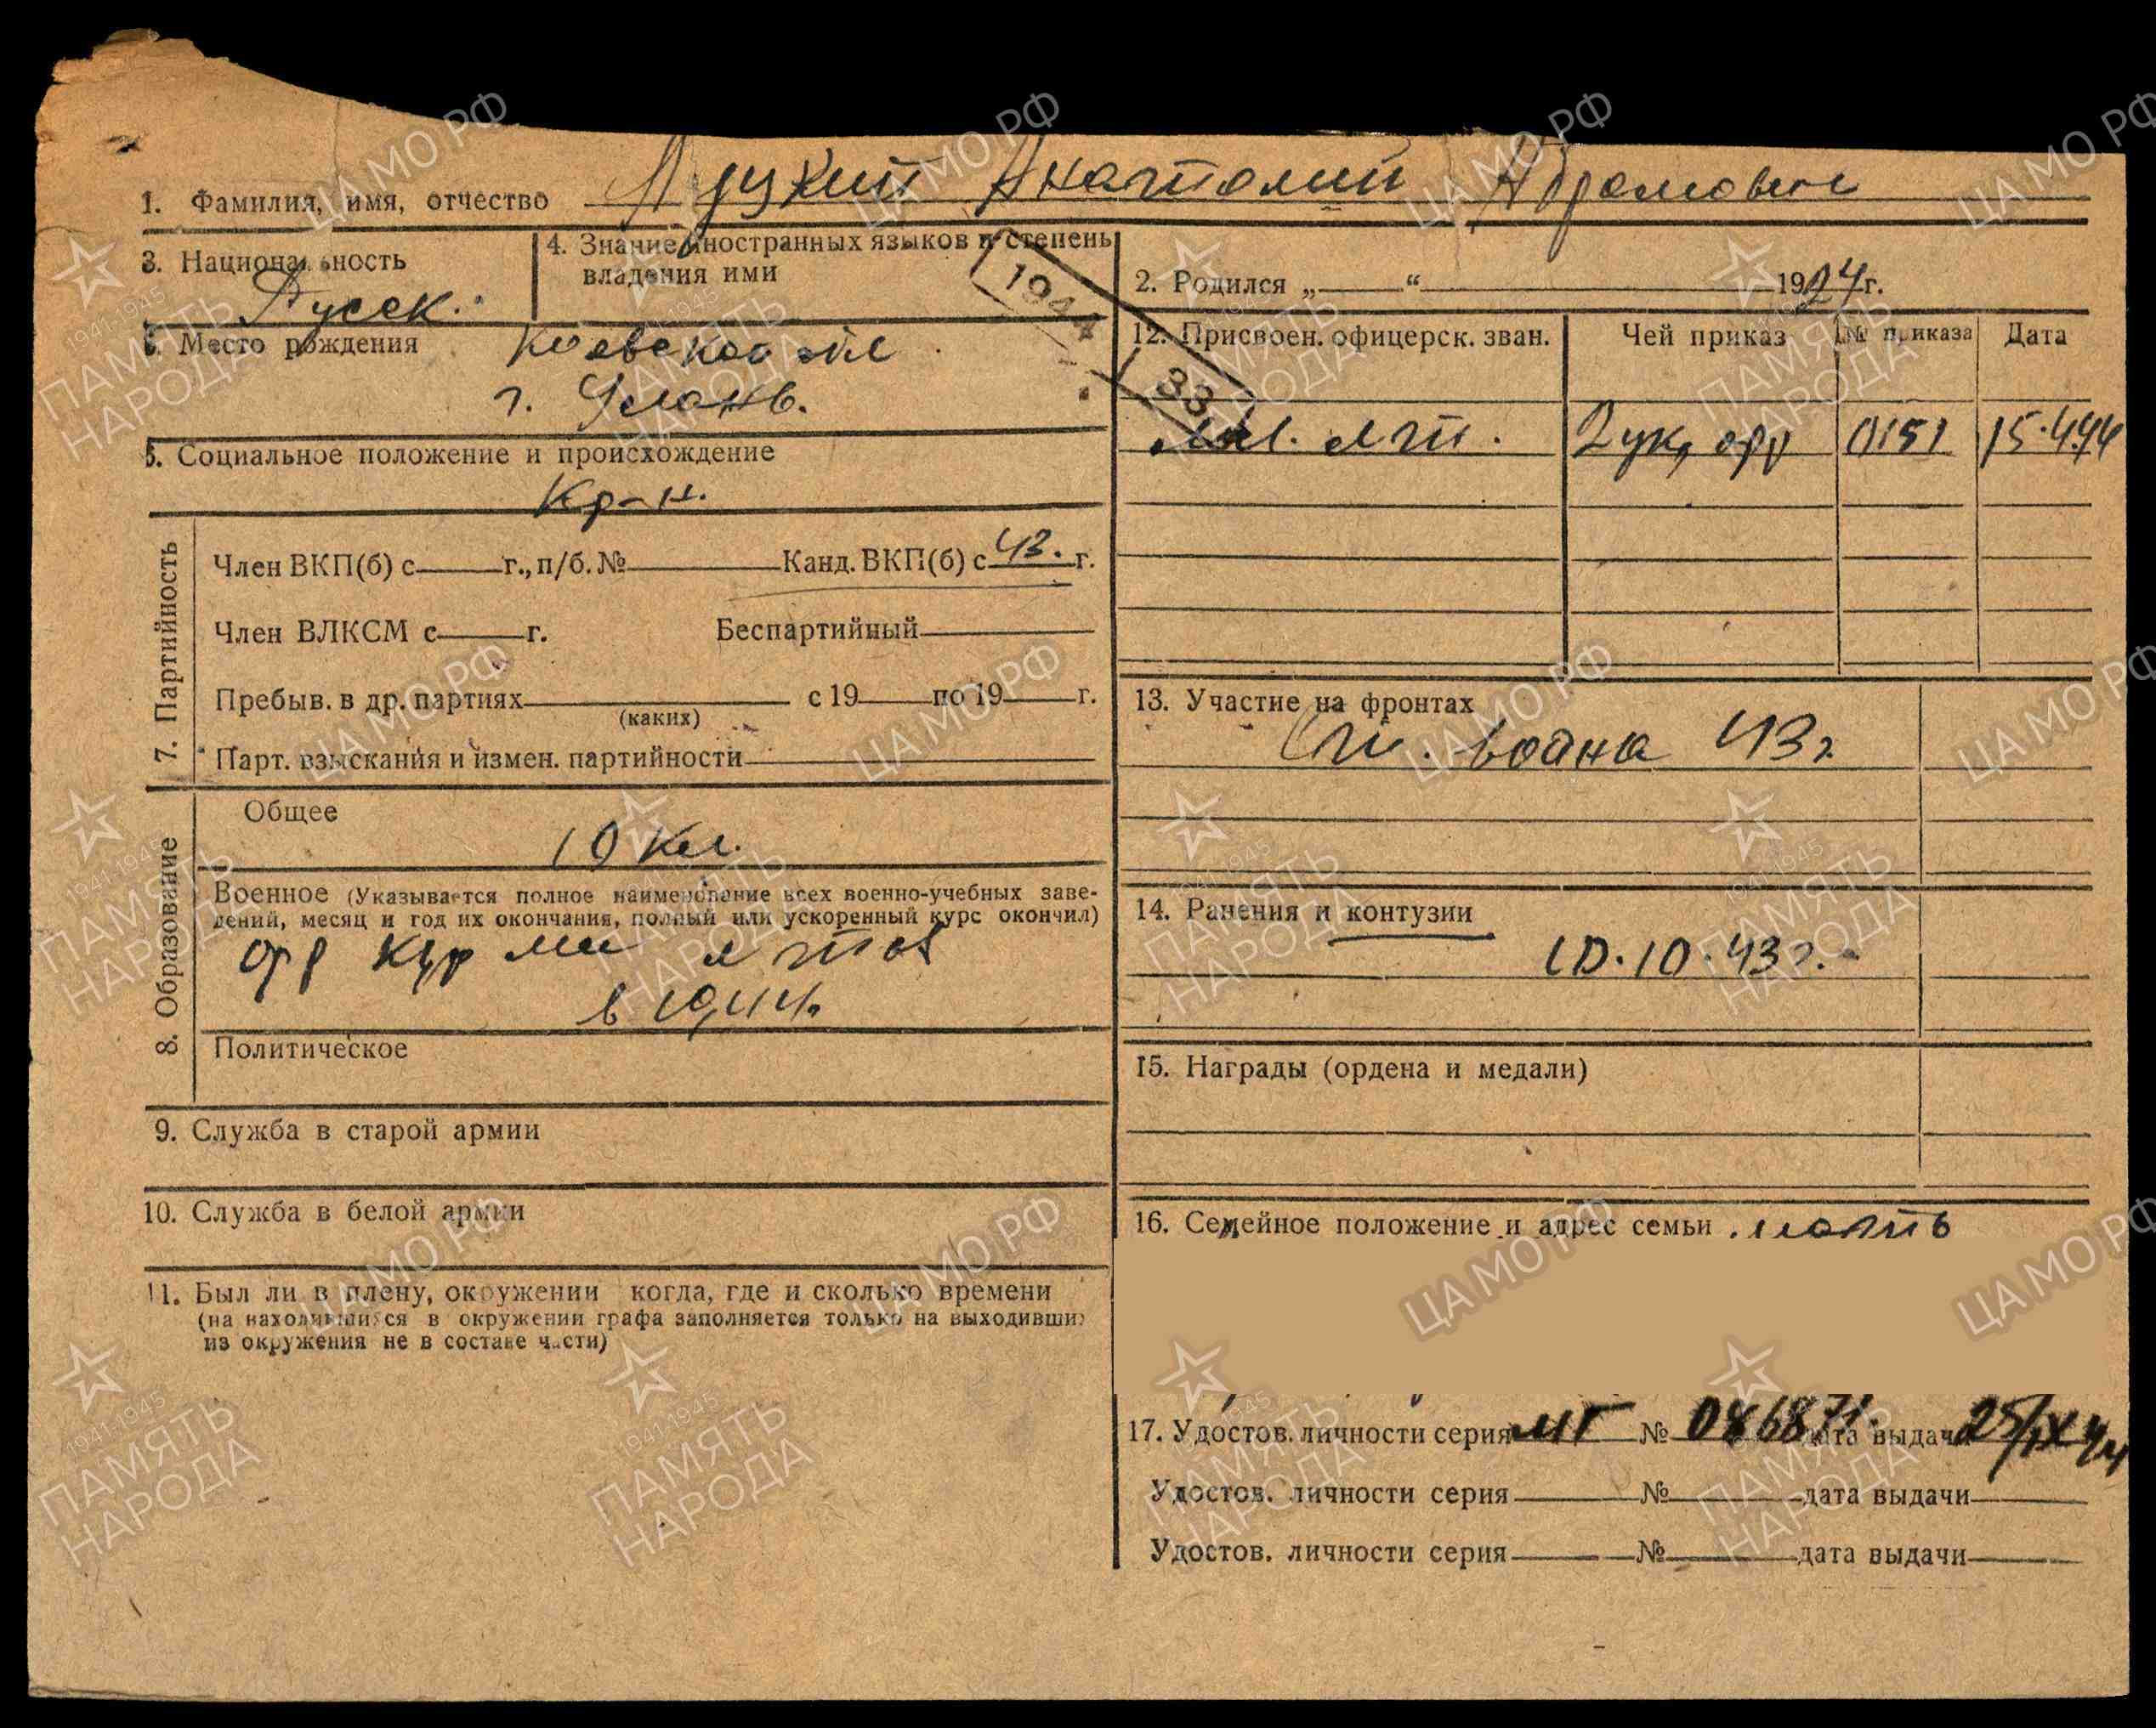 1. Фамилия, имя, отчество Луцкий Анатолий Абрамович
3. Национальность
Русск.
4. Знание иностранных языков и степень
владения ими
1944
33
2. Родился „ “ 1924 г.
6. Место рождения Киевской обл
г. Умань.
5. Социальное положение и происхождение
Кр-н.
7. Партийность
Член ВКП(б) с г., п/б. № Канд. ВКП(б) с 43. г.
Член ВЛКСМ с г. Беспартийный
Пребыв. в др. партиях с 19 по 19 г.
(каких)
Парт. взыскания и измен. партийности
8. Образование
Общее
10 кл.
Военное (Указывается полное наименование всех военно-учебных заве-
дений, месяц и год их окончания, полный или ускоренный курс окончил)
фр кур мл л-тов
в 1944.
Политическое
9. Служба в старой армии
10. Служба в белой армии
11. Был ли в плену, окружении когда, где и сколько времени
(на находившихся в окружении графа заполняется только на выходивших
из окружения не в составе части)
12. Присвоен. офицерск. зван. Чей приказ № приказа Дата
мл. л-т. 2 укр фр 0151 15.4.44
13. Участие на фронтах
От. война 43 г
14. Ранения и контузии
10.10.43 г.
15. Награды (ордена и медали)
16. Семейное положение и адрес семьи мать
17. Удостов. личности серия МГ № 086871 дата выдачи 25/IX 44
Удостов. личности серия № дата выдачи
Удостов. личности серия № дата выдачи
ЦАМО РФ
1941-1945
ПАМЯТЬ
НАРОДА